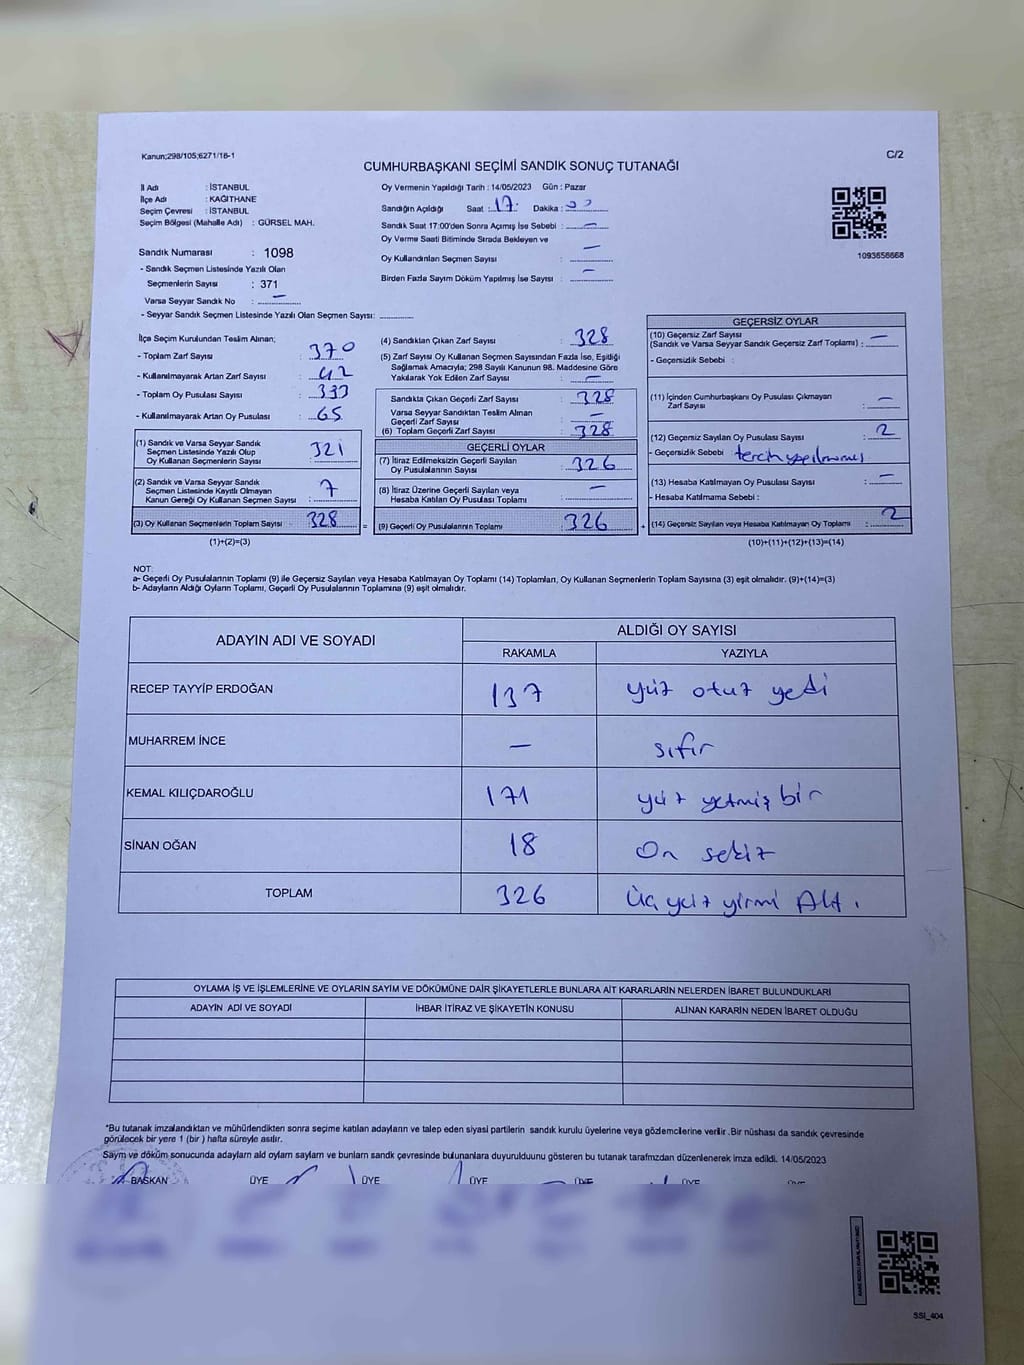 Kanun;298/105;6271/16-1
C/2
CUMHURBAŞKANI SEÇİMİ SANDIK SONUÇ TUTANAĞI
İl Adı : İSTANBUL
İlçe Adı : KAĞITHANE
Seçim Çevresi : İSTANBUL
Seçim Bölgesi (Mahalle Adı) : GÜRSEL MAH.
Sandık Numarası : 1098
- Sandık Seçmen Listesinde Yazılı Olan
Seçmenlerin Sayısı : 371
Varsa Seyyar Sandık No : —
- Seyyar Sandık Seçmen Listesinde Yazılı Olan Seçmen Sayısı:
Oy Vermenin Yapıldığı Tarih : 14/05/2023 Gün : Pazar
Sandığın Açıldığı Saat : 17. Dakika :
Sandık Saat 17:00'den Sonra Açımış İse Sebebi : —
Oy Verme Saati Bitiminde Sırada Bekleyen ve
Oy Kullandırılan Seçmen Sayısı : —
Birden Fazla Sayım Döküm Yapılmış İse Sayısı : —
1093658668
İlçe Seçim Kurulundan Teslim Alınan;
- Toplam Zarf Sayısı : 370
- Kullanılmayarak Artan Zarf Sayısı : 42
- Toplam Oy Pusulası Sayısı :
- Kullanılmayarak Artan Oy Pusulası : 65
(1) Sandık ve Varsa Seyyar Sandık
Seçmen Listesinde Yazılı Olup
Oy Kullanan Seçmenlerin Sayısı : 321
(2) Sandık ve Varsa Seyyar Sandık
Seçmen Listesinde Kayıtlı Olmayan
Kanun Gereği Oy Kullanan Seçmen Sayısı : 7
(3) Oy Kullanan Seçmenlerin Toplam Sayısı : 328
(1)+(2)=(3)
=
(4) Sandıktan Çıkan Zarf Sayısı : 328
(5) Zarf Sayısı Oy Kullanan Seçmen Sayısından Fazla İse, Eşitliği
Sağlamak Amacıyla; 298 Sayılı Kanunun 98. Maddesine Göre
Yakılarak Yok Edilen Zarf Sayısı : —
Sandıkta Çıkan Geçerli Zarf Sayısı : 328
Varsa Seyyar Sandıktan Teslim Alınan
Geçerli Zarf Sayısı : —
(6) Toplam Geçerli Zarf Sayısı : 328
GEÇERLİ OYLAR
(7) İtiraz Edilmeksizin Geçerli Sayılan
Oy Pusulalarının Sayısı : 326
(8) İtiraz Üzerine Geçerli Sayılan veya
Hesaba Katılan Oy Pusulası Sayısı : —
(9) Geçerli Oy Pusulalarının Toplamı : 326
+
GEÇERSİZ OYLAR
(10) Geçersiz Zarf Sayısı
(Sandık ve Varsa Seyyar Sandık Geçersiz Zarf Toplamı) : —
- Geçersizlik Sebebi :
(11) İçinden Cumhurbaşkanı Oy Pusulası Çıkmayan
Zarf Sayısı : —
(12) Geçersiz Sayılan Oy Pusulası Sayısı : 2
- Geçersizlik Sebebi : tercih yapılmamış
(13) Hesaba Katılmayan Oy Pusulası Sayısı : —
- Hesaba Katılmama Sebebi :
(14) Geçersiz Sayılan veya Hesaba Katılmayan Oy Toplamı : 2
(10)+(11)+(12)+(13)=(14)
NOT:
a- Geçerli Oy Pusulalarının Toplamı (9) ile Geçersiz Sayılan veya Hesaba Katılmayan Oy Toplamı (14) Toplamları, Oy Kullanan Seçmenlerin Toplam Sayısına (3) eşit olmalıdır. (9)+(14)=(3)
b- Adayların Aldığı Oyların Toplamı, Geçerli Oy Pusulalarının Toplamına (9) eşit olmalıdır.
ADAYIN ADI VE SOYADI
ALDIĞI OY SAYISI
RAKAMLA YAZIYLA
RECEP TAYYİP ERDOĞAN 137 yüz otuz yedi
MUHARREM İNCE — sıfır
KEMAL KILIÇDAROĞLU 171 yüz yetmiş bir
SİNAN OĞAN 18 On sekiz
TOPLAM 326 Üç yüz yirmi Altı
OYLAMA İŞ VE İŞLEMLERİNE VE OYLARIN SAYIM VE DÖKÜMÜNE DAİR ŞİKAYETLERLE BUNLARA AİT KARARLARIN NELERDEN İBARET BULUNDUKLARI
ADAYIN ADI VE SOYADI İHBAR İTİRAZ VE ŞİKAYETİN KONUSU ALINAN KARARIN NEDEN İBARET OLDUĞU
*Bu tutanak imzalandıktan ve mühürlendikten sonra seçime katılan adayların ve talep eden siyasi partilerin sandık kurulu üyelerine veya gözlemcilerine verilir .Bir nüshası da sandık çevresinde
görülecek bir yere 1 (bir ) hafta süreyle asılır.
Sayım ve döküm sonucunda adayların aldı oyların sayıları ve bunların sandık çevresinde bulunanlara duyurulduunu gösteren bu tutanak tarafımzdan düzenlenerek imza edildi. 14/05/2023
BAŞKAN ÜYE ÜYE ÜYE ÜYE ÜYE
SSI_404